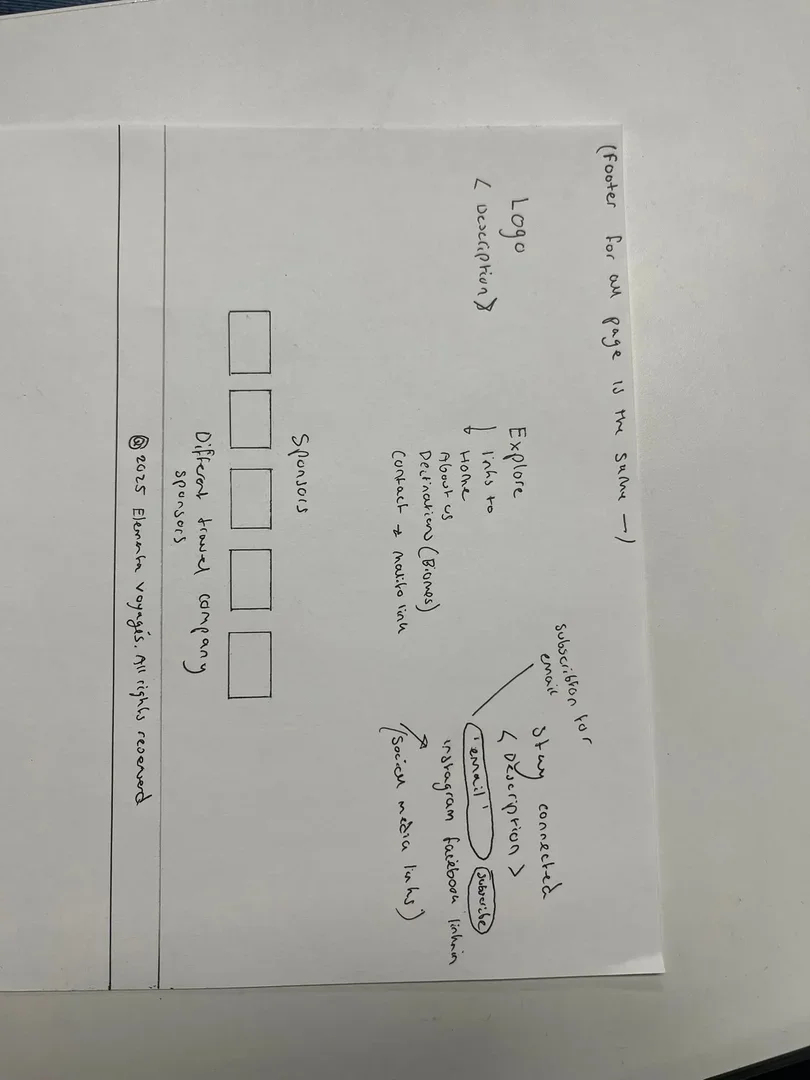 (Footer for all page is the same →)
Logo
< Description >
Explore
links to
Home
About us
Destinations (Biomes)
Contact → mailto link
subscribtion for
email
Stay connected
< Description >
'email'
subscribe
instagram facebook linkedin
(social media links)
Sponsors
Different travel company
sponsors
@ 2025 Elementa Voyages. All rights reserved